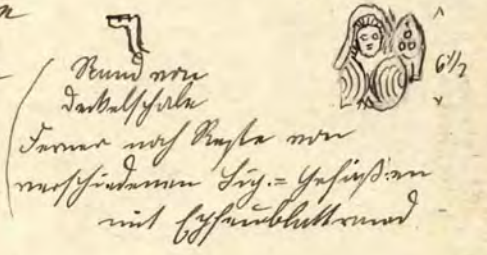 6 1/2
Rand von
Deckelschale
Ferner noch Reste von
verschiedenen Sig.= Gefäßen
mit Epheublattrand